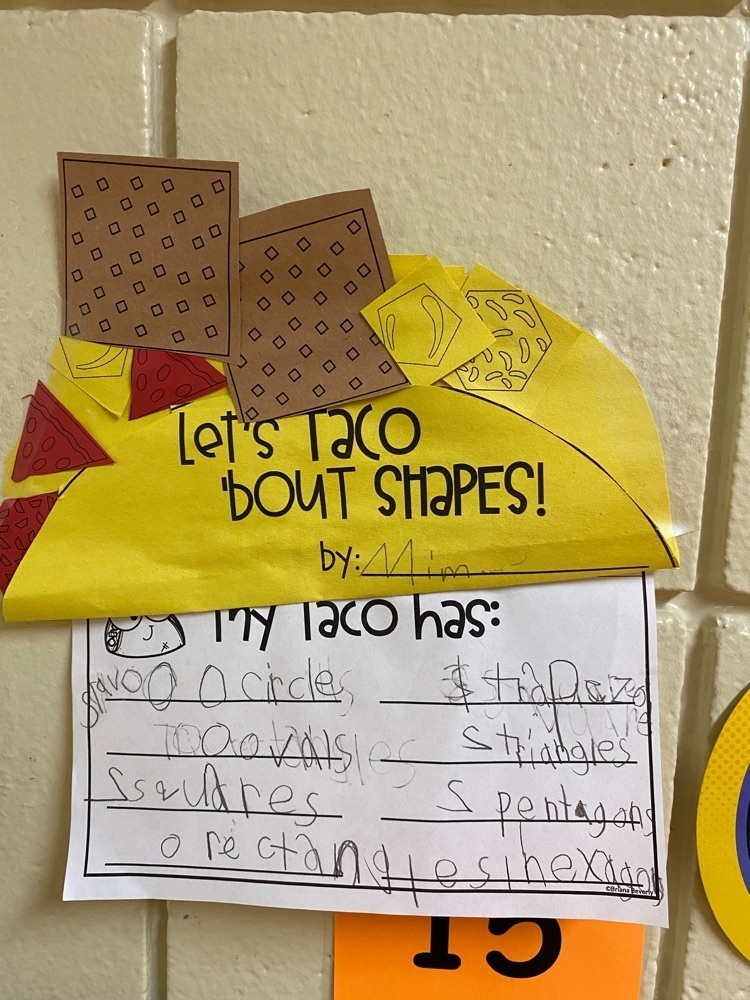 Let's Taco
'bout Shapes!
by: Mim
My Taco has:
0 circles
trapezo
0 ovals
2 triangles
2 squares
2 pentagons
0 rectangles 1 hexagon
©Briana Beverly
15